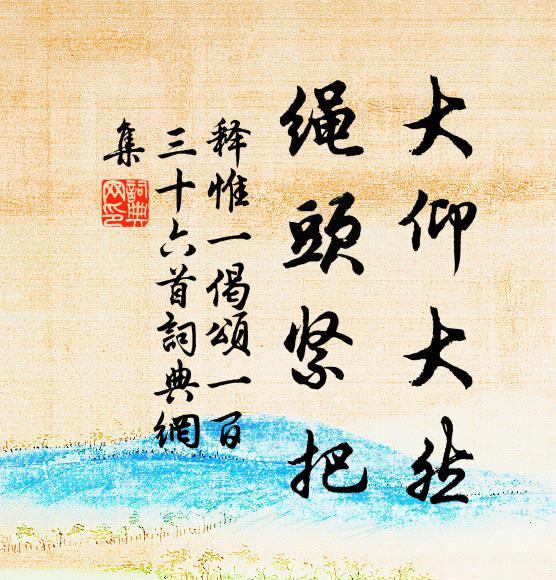 大仰大然
绳頭紧把
释惟一偈頌一百
三十六首詞典網
集
詞典网印